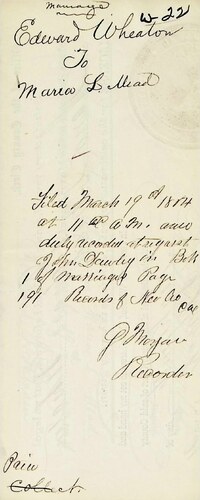 Marriage
W-22
Edward Wheaton
To
Maria L. Mead
Filed March 19th 1864
at 11 A.M. and
duly recorded at request
of John in Book
1 of Marriages Page
191 Records of Co
Cal
Morgan
Recorder
Paid
Collect.